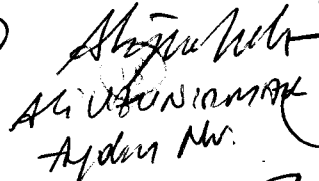 Ali UZUNIRMAK
Aydın Mv.